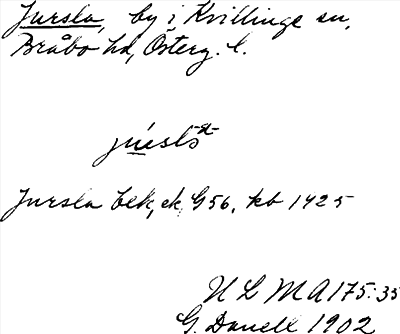 Jursla, by i Kvillinge sn,
Bråbo hd, Österg. l.
Jursla bek, ek G56, kb 1425
ULMA 175:35
G. Danell 1902